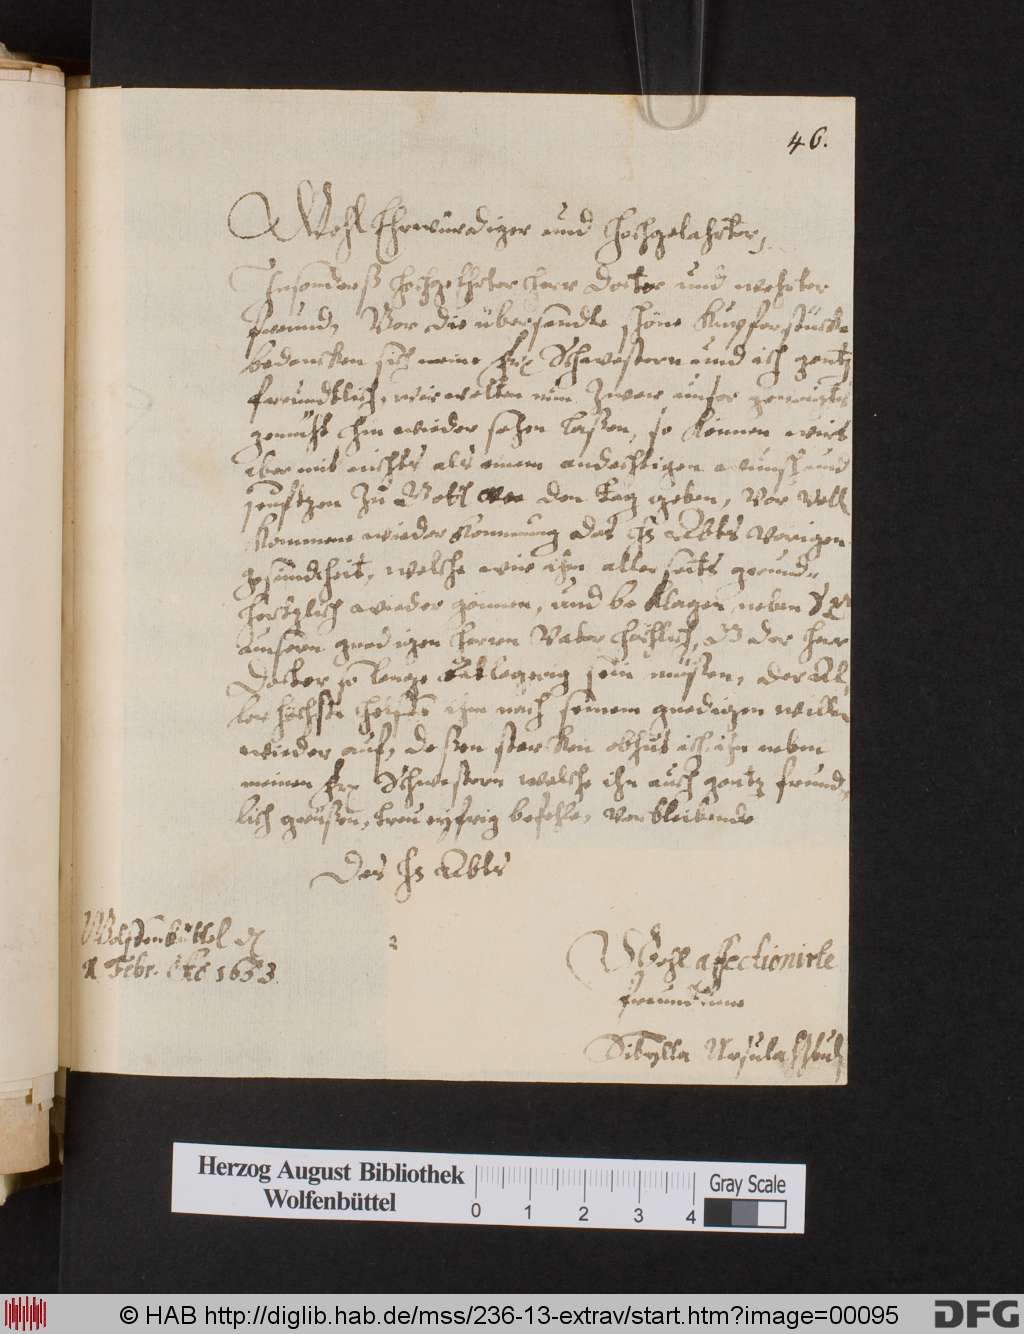 46.
Wohl Ehrwürdiger und Hochgelahrter,
Insonderß hochgeEhrter Herr Doctor und wehrter
freund, Vor die übersandte schöne Kupferstücke
bedancken sich meine Schwestern und ich gantz
freundtlich, wir wolten nun zwar unser geneigtes
gemüht ihm wieder sehen laßen, so können wirs
aber mit nichts als einem andechtigen wunsch und
seufftzen zu Gott den tag geben, Vor voll
kommene wieder kommung des H Abts Vorigen
gesundtheit, welche wir ihm aller seits
hertzlich wieder gönnen, und beklagen neben
unsern gnedigen herren Vater höchlich, der herr
Doctor so lange sein müßen, der Al
ler höchste ihm nach seinem gnedigen willen
wieder auf, deßen obhut ich ihn neben
meinen Schwestern welche ihn auch gantz freund
lich grüßen, treu eyfrig befehle, verbleibende
Des H Abts
Wolffenbüttel
Febr. 1653
Wohl affectionirte
freundinne
Sibylla Ursula
Herzog August Bibliothek
Wolfenbüttel
0 1 2 3 4
Gray Scale
© HAB http://diglib.hab.de/mss/236-13-extrav/start.htm?image=00095
DFG